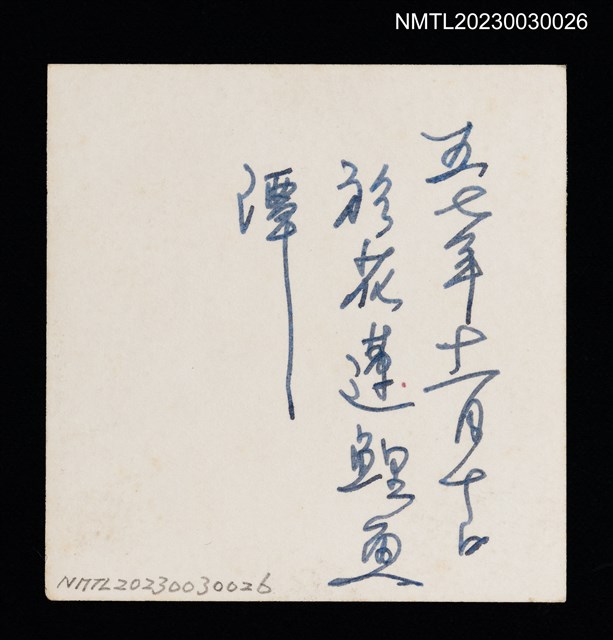 NMTL20230030026
五七年十一月十日
於花蓮鯉魚
潭
NMTL20230030026